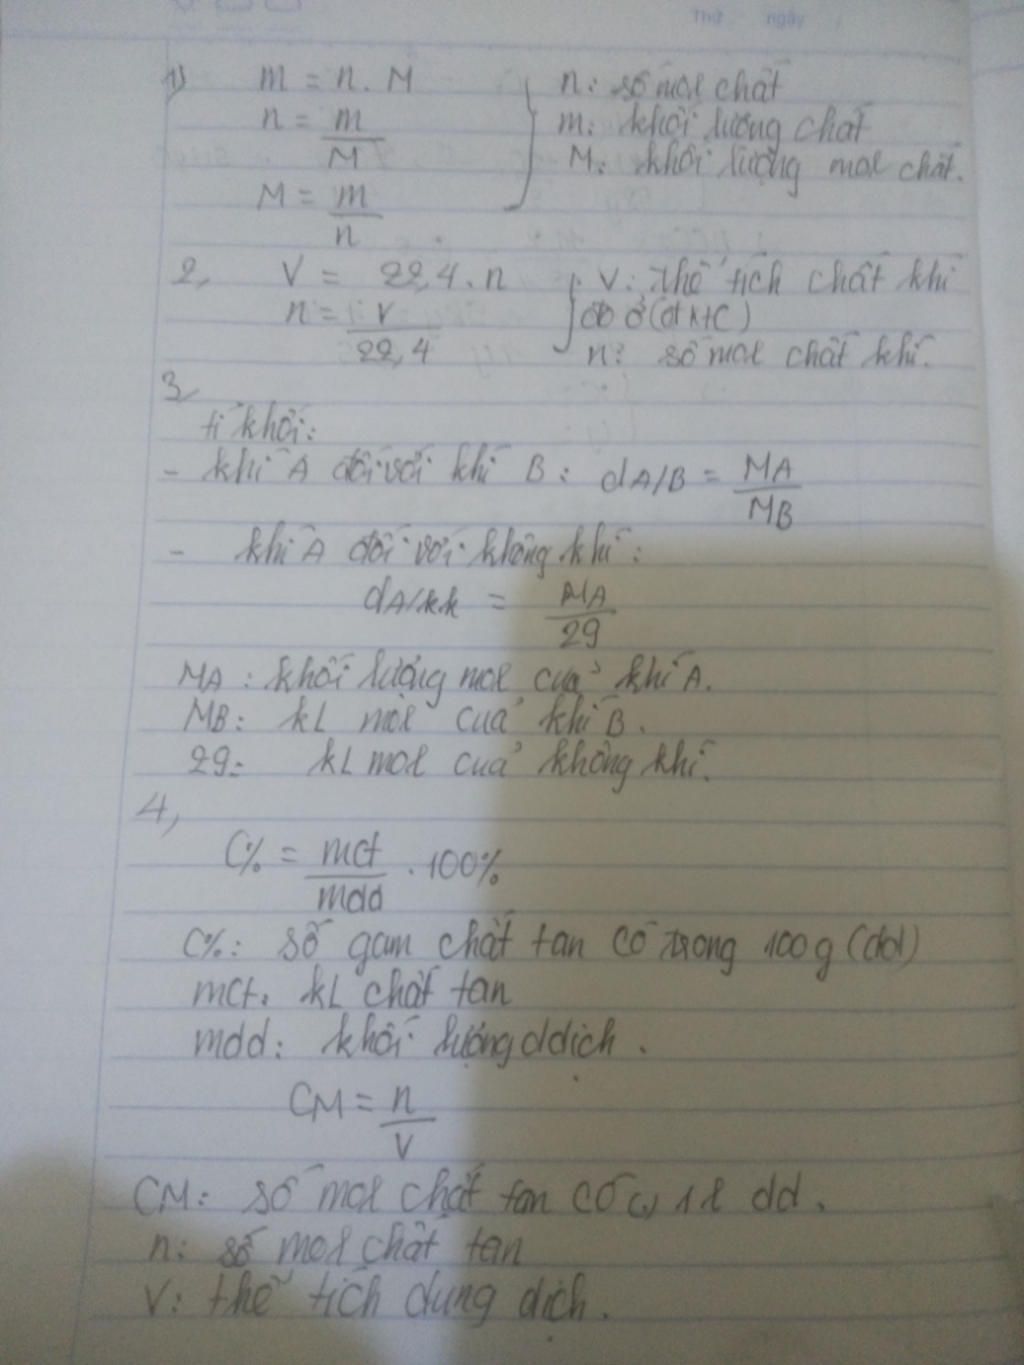 Thứ ngày
1) m = n. M
n = m/M
M = m/n
n: số mol chất
m: khối lượng chất
M: khối lượng mol chất.
2, V = 22,4 . n
n = V/22,4
V: thể tích chất khí
đo ở (đktc)
n: số mol chất khí.
3,
tỉ khối:
- khí A đối với khí B: dA/B = MA/MB
- khí A đối với không khí:
dA/kk = MA/29
MA: khối lượng mol của khí A.
MB: kL mol của khí B.
29: kL mol của không khí.
4,
C% = mct/mdd . 100%
C%: số gam chất tan có trong 100g (dd)
mct: kL chất tan
mdd: khối lượng ddịch.
CM = n/V
CM: số mol chất tan có 1l dd.
n: số mol chất tan
V: thể tích dung dịch.